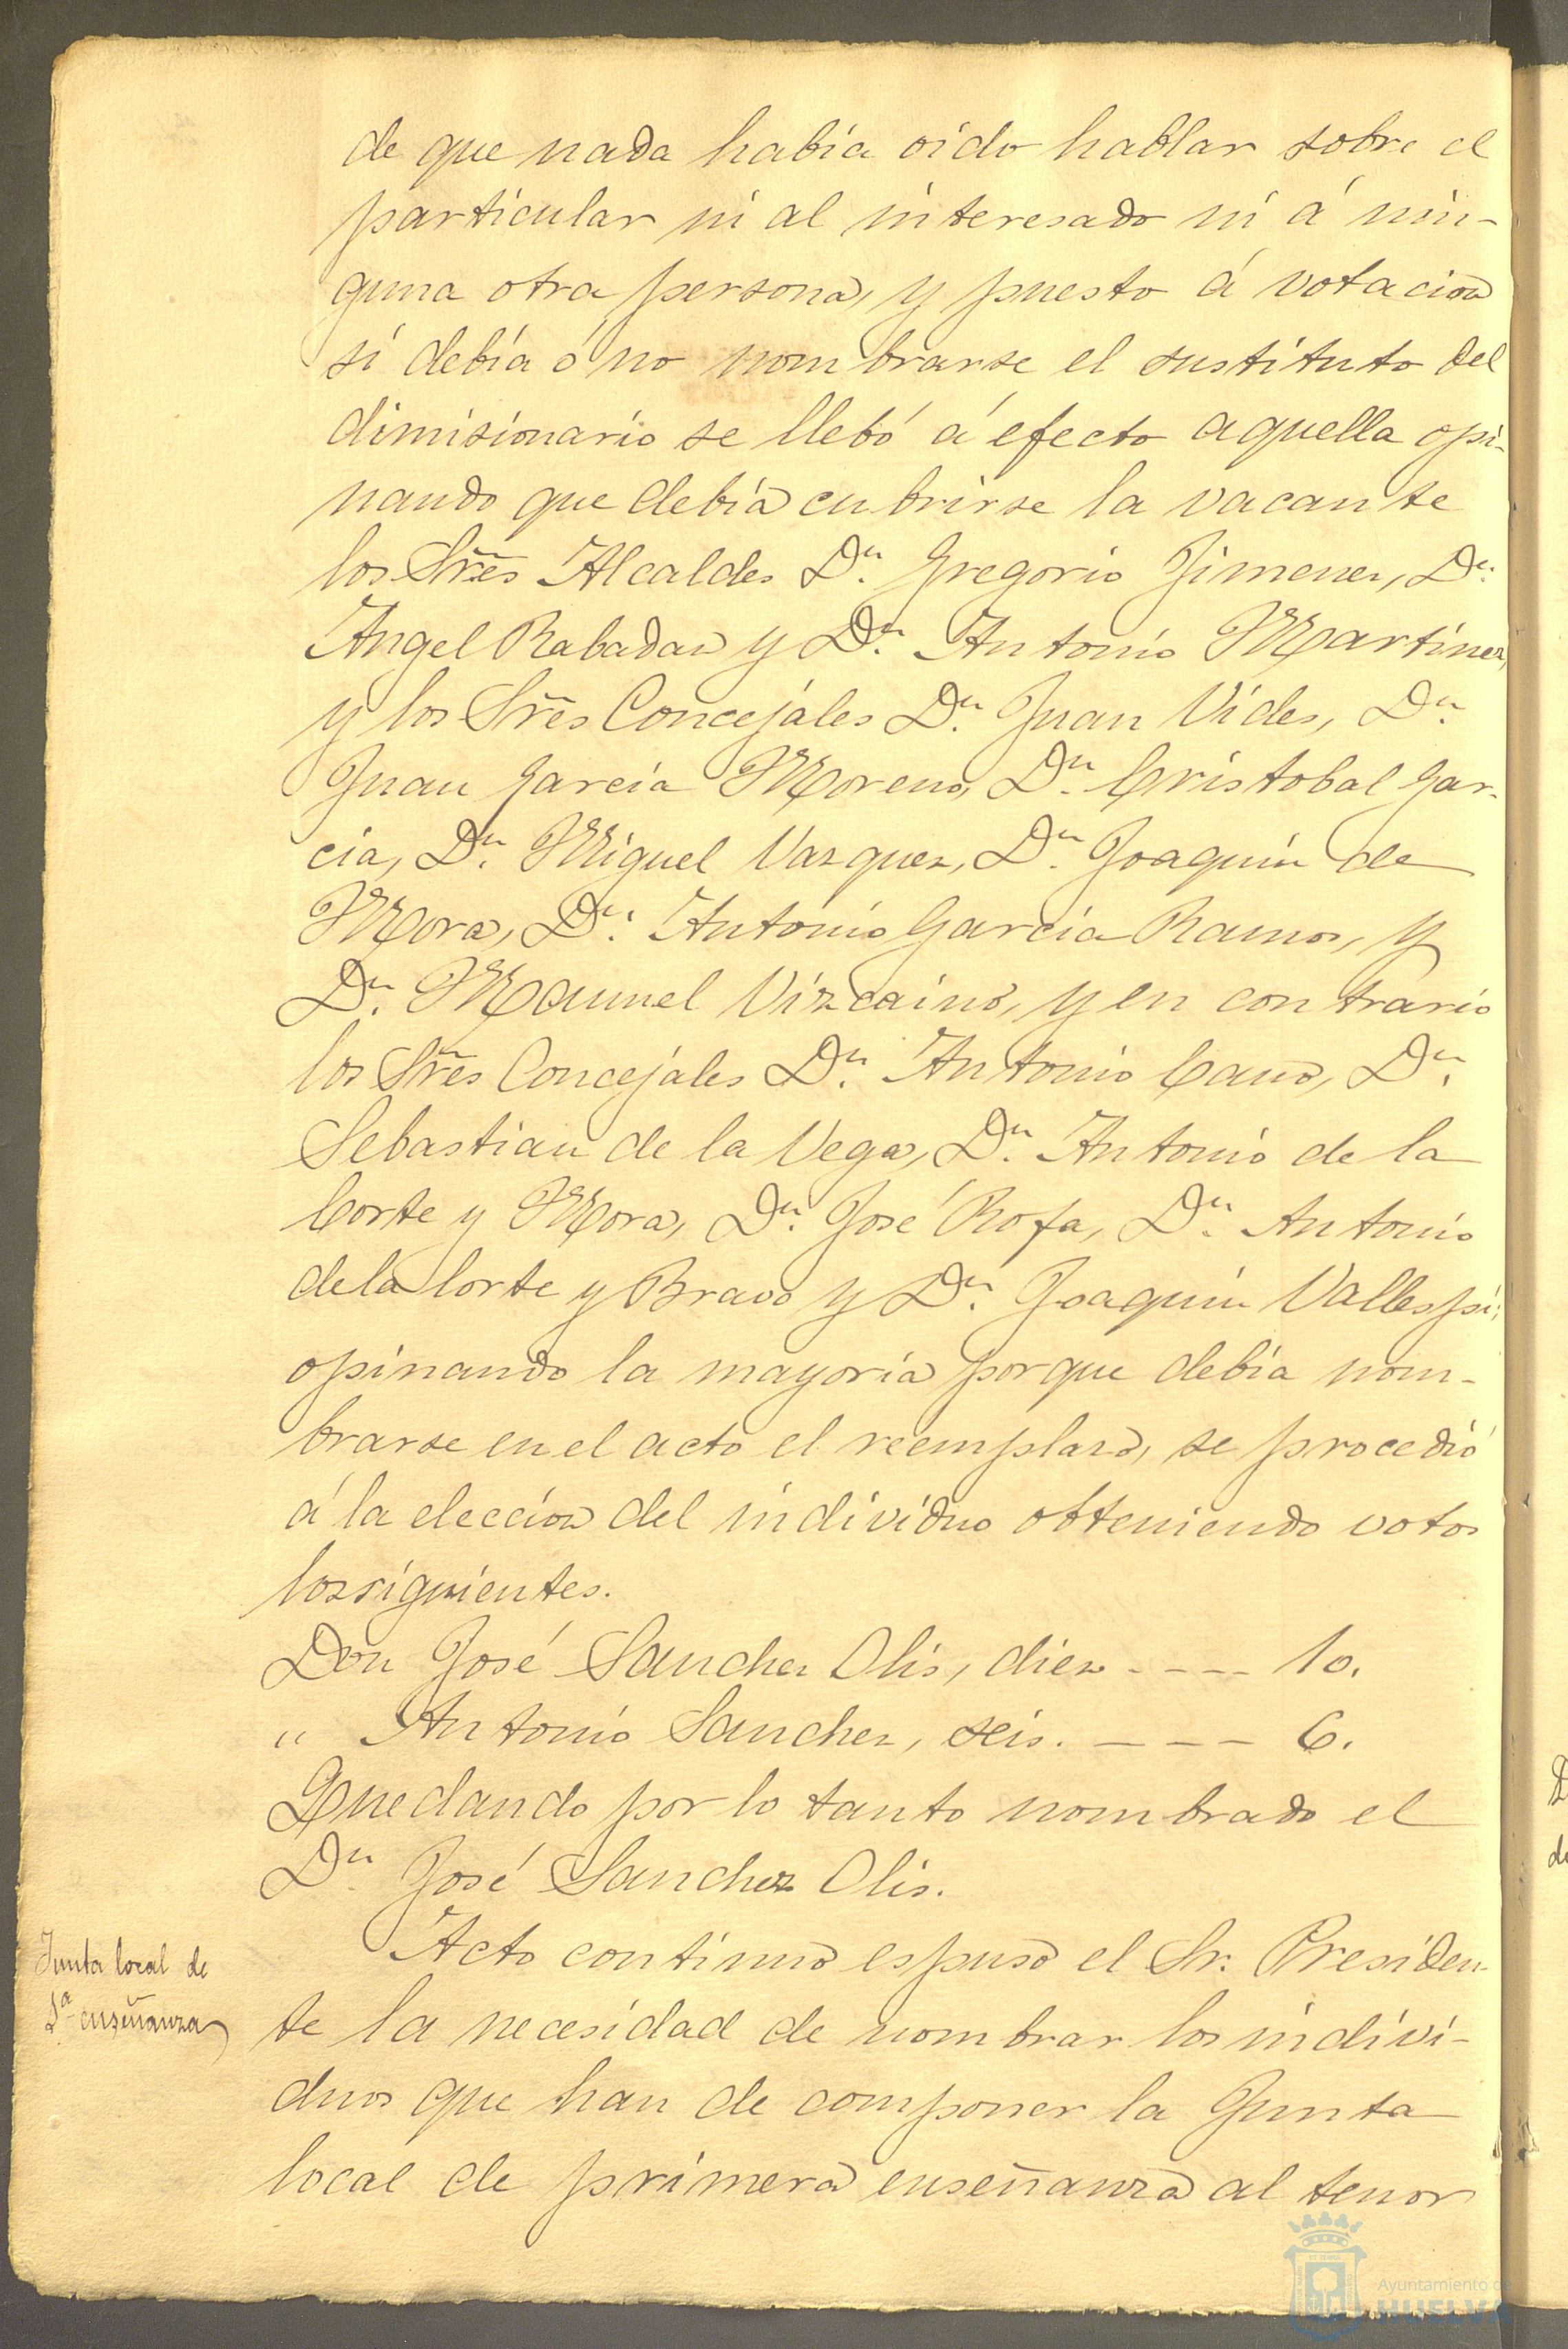 de que nada había oido hablar sobre el
particular ni al interesado ni á nin-
guna otra persona, y puesto á votacion
si debía ó no nombrarse el sustituto del
dimisionario se llebó á efecto aquella opi-
nando que debia cubrirse la vacante
los Sres̃ Alcaldes Dn. Gregorio Jimenez, Dn.
Angel Rabadan y Dn. Antonio Martinez,
y los Sres̃ Concejales Dn. Juan Vides, Dn.
Juan Garcia Moreno, Dn. Cristobal Gar-
cia, Dn. Miguel Vazquez, Dn. Joaquin de
Mora, Dn. Antonio Garcia Ramos, y
Dn. Manuel Vizcaino, y en contrario
los Sres̃ Concejales Dn. Antonio Cano, Dn.
Sebastian de la Vega, Dn. Antonio de la
Corte y Mora, Dn. José Rofa, Dn. Antonio
de la Corte y Bravo y Dn. Joaquin Vallespi;
opinando la mayoria porque debia nom-
brarse en el acto el reemplazo, se procedió
á la eleccion del individuo obteniendo votos
los siguientes.
Don José Sanchez Olis, diez ---- 10.
" Antonio Sanchez, seis. ---- 6.
Quedando por lo tanto nombrado el
Dn José Sanchez Olis.
Acto continuo espuso el Sr. Presiden-
Junta local de
1ª enseñanza
te la necesidad de nombrar los indivi-
duos que han de componer la Junta
local de primera enseñanza al tenor
Ayuntamiento de
HUELVA